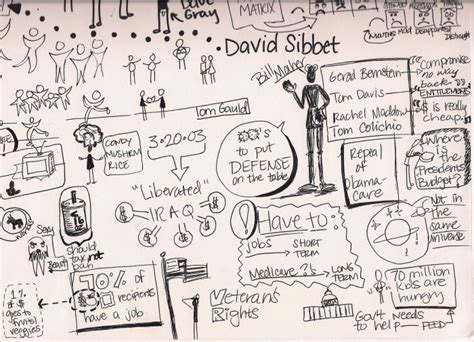 Dave
Gray
MATRIX
David Sibbet
Bill Maher
Gerad Bernstein
Tom Davis
Rachel Maddow
Tom Colichio
Compromise
no way
back
ENTITLEMENTS
is really
cheap
Tom Gauld
CONDY
MUSHRM
RICE
3•20•03
"Liberated"
IRAQ
$'s
to put
DEFENSE
on the table
Repeal
of
Obama-
care
Where is
the
Presidents
Budget?
Not in
the
same
universe
! Have to:
jobs → SHORT
TERM
Medicare ?'s → LONG
TERM
Sexy
Beast
should
tax not
ban
1%
of $
goes to
fruits/
veggies
70% of
recipients
have a job
Veteran's
Rights
70 million
kids are
hungry
Gov't Needs
to help → FEED